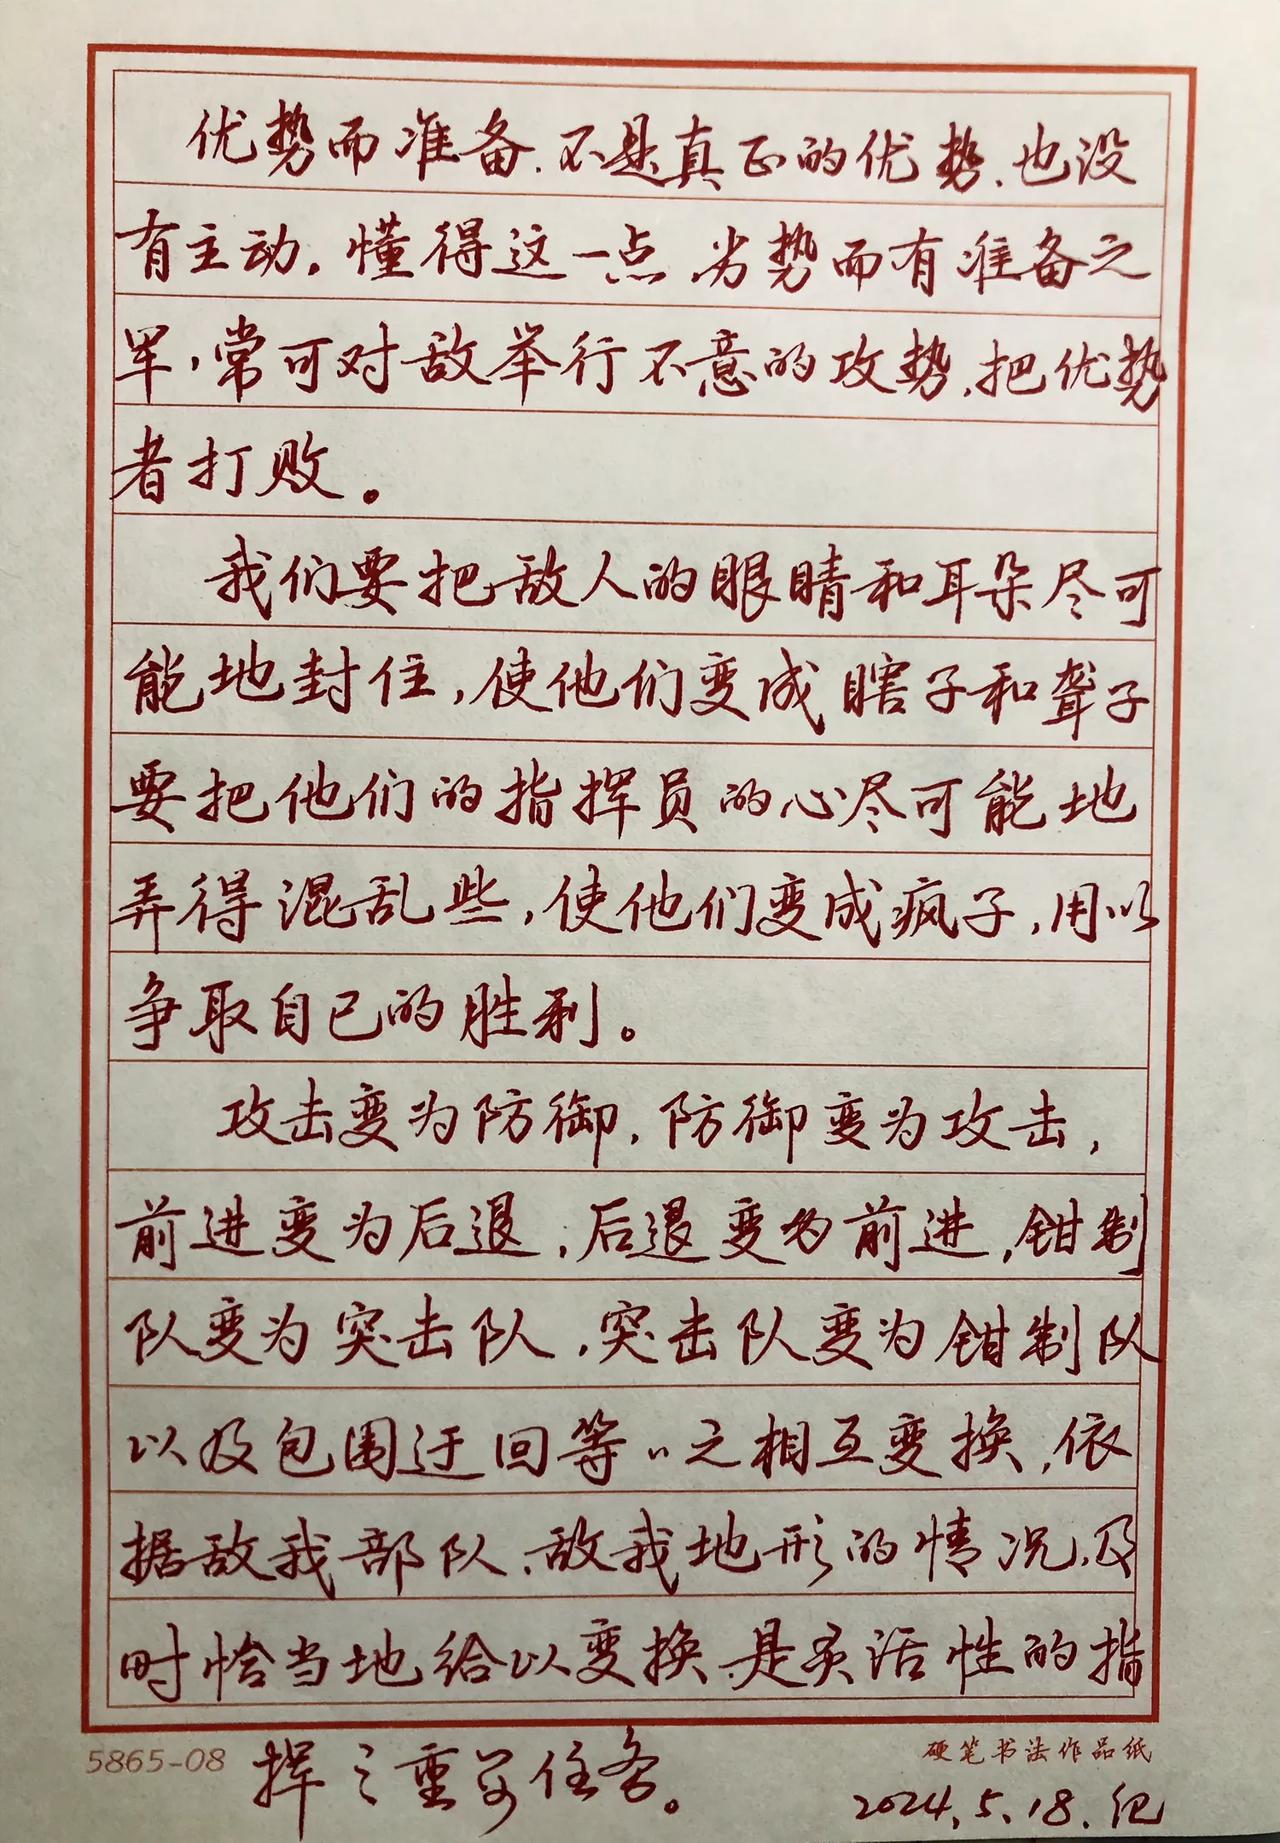 优势而准备、不是真正的优势、也没
有主动。懂得这一点 劣势而有准备之
军，常可对敌举行不意的攻势，把优势
者打败。
我们要把敌人的眼睛和耳朵尽可
能地封住，使他们变成瞎子和聋子
要把他们的指挥员的心尽可能地
弄得混乱些，使他们变成疯子，用以
争取自己的胜利。
攻击变为防御，防御变为攻击，
前进变为后退，后退变为前进，钳制
队变为突击队，突击队变为钳制队
以及包围迂回等〃之相互变换，依
据敌我部队、敌我地形的情况，及
时恰当地给以变换、是灵活性的指
挥之重要任务。
5865-08
硬笔书法作品纸
2024.5.18.